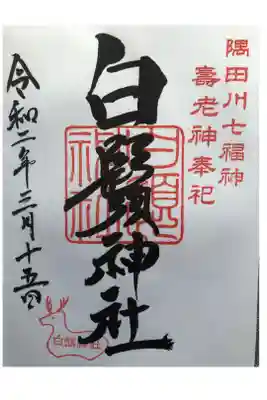 隅田川七福神
壽老神奉祀
白鬚神社
白鬚神社
令和二年三月十五日
白鬚神社